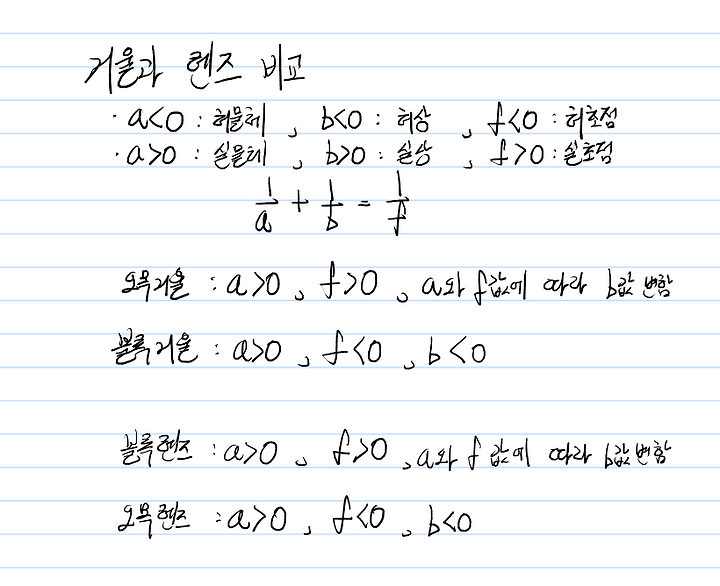 거울과 렌즈 비교
· a<0 : 허물체 , b<0 : 허상 , f<0 : 허초점
· a>0 : 실물체 , b>0 : 실상 , f>0 : 실초점
1/a + 1/b = 1/f
오목거울 : a>0 , f>0 , a와 f값에 따라 b값 변함
볼록거울 : a>0 , f<0 , b<0
볼록렌즈 : a>0 , f>0 , a와 f 값에 따라 b값 변함
오목렌즈 : a>0 , f<0 , b<0